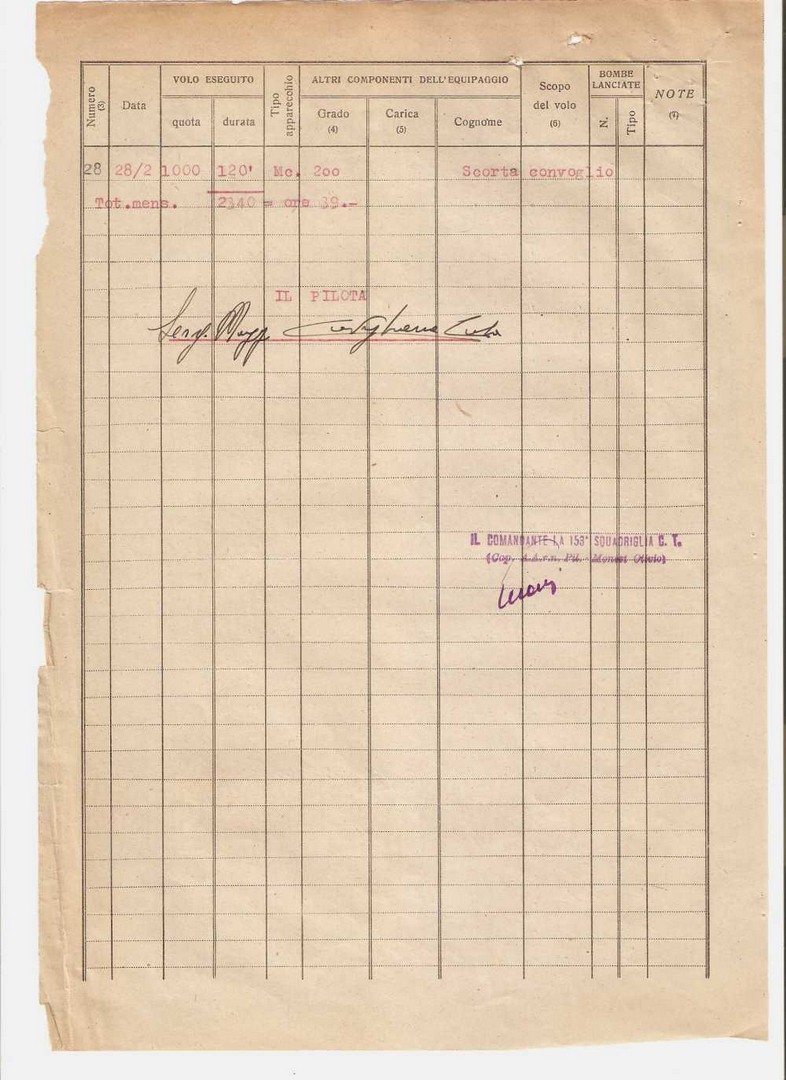 Numero (3) Data VOLO ESEGUITO quota durata Tipo apparecchio ALTRI COMPONENTI DELL'EQUIPAGGIO Grado (4) Carica (5) Cognome Scopo del volo (6) BOMBE LANCIATE N. Tipo NOTE (7)
28 28/2 1000 120' Mc. 200 Scorta convoglio
Tot.mens. 2340 = ore 39.-
IL PILOTA
Serg. Magg.
IL COMANDANTE LA 153ª SQUADRIGLIA C. T.
(Cap. A.A.r.n. Pil. - Monesi Olizio)